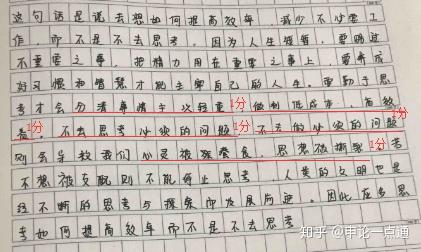 这句话是说去想如何提高效率，减少不必要工
作，而不是不去思考。因为人生短暂，要略过
不重要之事，把精力用在重要之事上，要养成
好习惯和智慧才能主宰自己的人生。要勤于思
考才会分清事情予以轻重1分做到低成本、高效
益。1分不去思考必须的问题1分不去做必须的问题1分
则会导致我们心灵被强奏食，思想被撕裂1分若
不想被支配则不能停止思考，人类的文明也是
经不断的思考与探索而发展向进。因此应多思
考如何提高效率而不是不去思考
知乎 @申论一点通